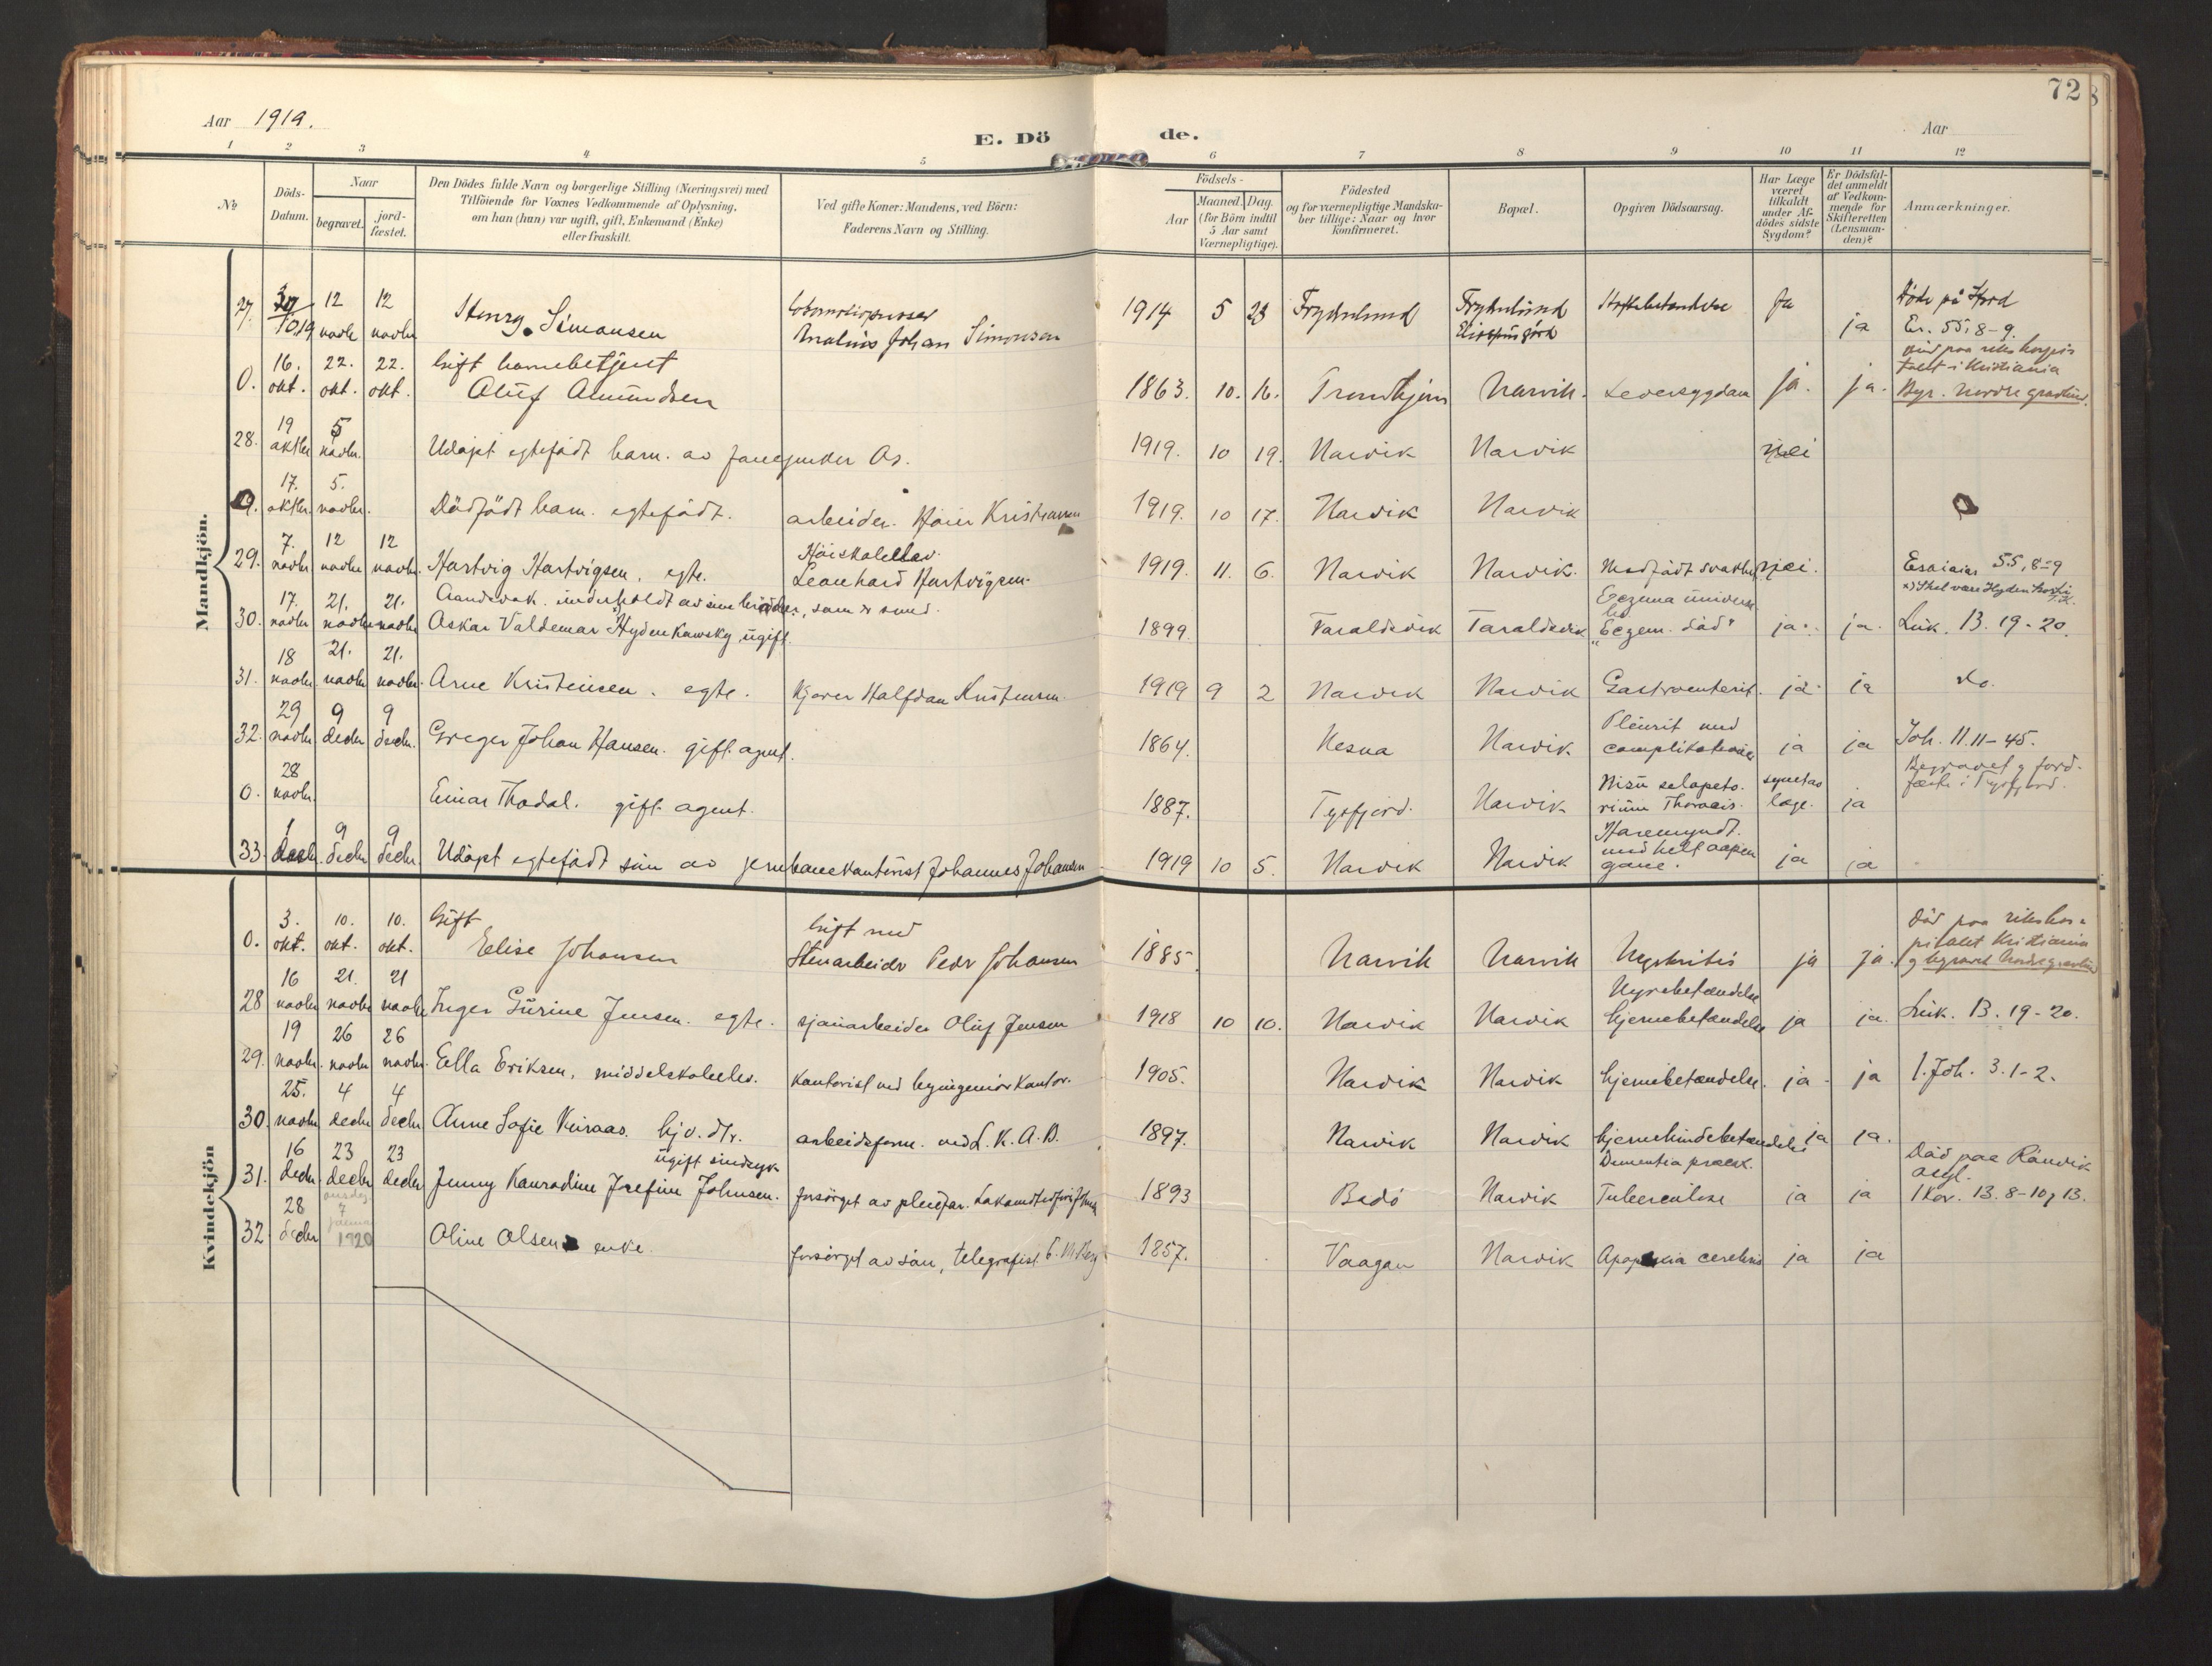 72
Aar 1919.
E. Dö de.
Aar
1 2 3 4 5 6 7 8 9 10 11 12
№
Döds-Datum.
Naar
begravet.
jord-fæstet.
Den Dödes fulde Navn og borgerlige Stilling (Næringsvei) med
Tilföiende for Voxnes Vedkommende af Oplysning,
om han (hun) var ugift, gift, Enkemand (Enke)
eller fraskilt.
Ved gifte Koner: Mandens, ved Börn:
Faderens Navn og Stilling.
Födsels-
Aar
Maaned. Dag.
(for Börn indtil
5 Aar samt
Værnepligtige).
Födested
og for værnepligtige Mandska-
ber tillige: Naar og hvor
konfirmeret.
Bopæl.
Opgiven Dödsaarsag.
Har Læge
været
tilkaldt
under Af-
dödes sidste
Sygdom?
Er Dödsfal-
det anmeldt
af Vedkom-
mende for
Skifteretten
(Lensman-
den)?
Anmærkninger.
Mandkjön.
27. 10 19 12 novbr 12 novbr Henry Simonsen Johan Simonsen 1914 5 23 Frydenlund Frydenlund ja ja Es. 55, 8-9.
0. 16. okt. 22. okt. 22. okt. Gift havnebetjent
Oluf Amundsen 1863. 10. 16. Trondhjem Narvik. Leversygdom ja. ja. Død paa rikshospitalet i Kristiania
Begr. Nordre gravlund.
28. 19 oktbr 5 novbr. Udøpt egtefødt barn. av 1919. 10 19. Narvik Narvik nei
17. oktbr. 5. novbr. Dødfødt barn. egtefødt. arbeider. 1919. 10 17. Narvik Narvik
29. 7. novbr 12 novbr 12 novbr. Hartvig Hartvigsen. egte. Høiskoleelev.
Leonhard Hartvigsen. 1919. 11. 6. Narvik Narvik. Medfødt svakhet nei. Esaias 55, 8-9
30. 17. novbr 21. novbr 21. novbr Aandsvak. underholdt av sine brødre, som er smed.
Oskar Valdemar Hydenkowsky, ugift. 1899. Taraldsvik Taraldsvik Eczema
"Eczem. død" ja. ja. Luk. 13. 19-20.
31. 18 novbr. 21. novbr 21. novbr. Arne Kristensen. egte. kjører Halfdan Kristensen. 1919 9 2 Narvik Narvik Gastroenterit. ja. ja do.
32. 29 novbr 9 decbr 9 decbr. Greger Johan Hansen. gift. agent. 1864. Nesna Narvik Pleurit med
complikationer ja ja Joh. 11. 11-45.
0. 28 novbr. Einar Thodal. gift. agent. 1887. Tysfjord. Narvik Thoracis. ja Begravet og jord-
fæstet i Tysfjord.
33. 1 decbr. 9 decbr 9 decbr. Udøpt egtefødt søn av jernbanekontorist Johannes Johansen 1919 10 5. Narvik Narvik Haremyndt.
med helt aapen
gane. ja ja
Kvindekjön
0. 3. okt. 10. okt. 10. okt. Gift
Elise Johansen Gift med
Stenarbeider Peder Johansen 1885 Narvik Narvik Nefritis ja ja. Død paa rikshos-
pitalet Kristiania
og begravet Nordre gravlund
28 16 novbr 21. novbr 21 novbr Inger Gurine Jensen. egte. sjauarbeider Oluf Jensen 1918 10 10. Narvik Narvik Nyrebetændelse
hjernebetændelse ja ja. Luk. 13. 19-20.
29. 19 novbr. 26 novbr 26 novbr. Ella Eriksen, middelskoleelev. kontorist ved byingeniørkontor. 1905. Narvik Narvik hjernebetændelse. ja. ja 1. Joh. 3. 1-2.
30. 25. novbr 4 decbr 4 decbr Anne Sofie hjv. dtr. arbeidsform. ved L. K. A. B. 1897. Narvik Narvik hjernehindebetændelse ja ja.
31. 16 decbr. 23 decbr 23 decbr ugift sindssyk
Jenny Konradine Josefine Johnsen. forsørget av pleiefar. 1893 Bodø Narvik Dementia præcox.
Tuberculose ja ja Død paa Rønvik
asyl.
1 Kor. 13. 8-10, 13.
32 28 decbr onsdag 7 januar 1920 Oline Olsen enke. forsørget av søn, telegrafist 1857. Vaagan Narvik Apoplexia cerebri ja ja